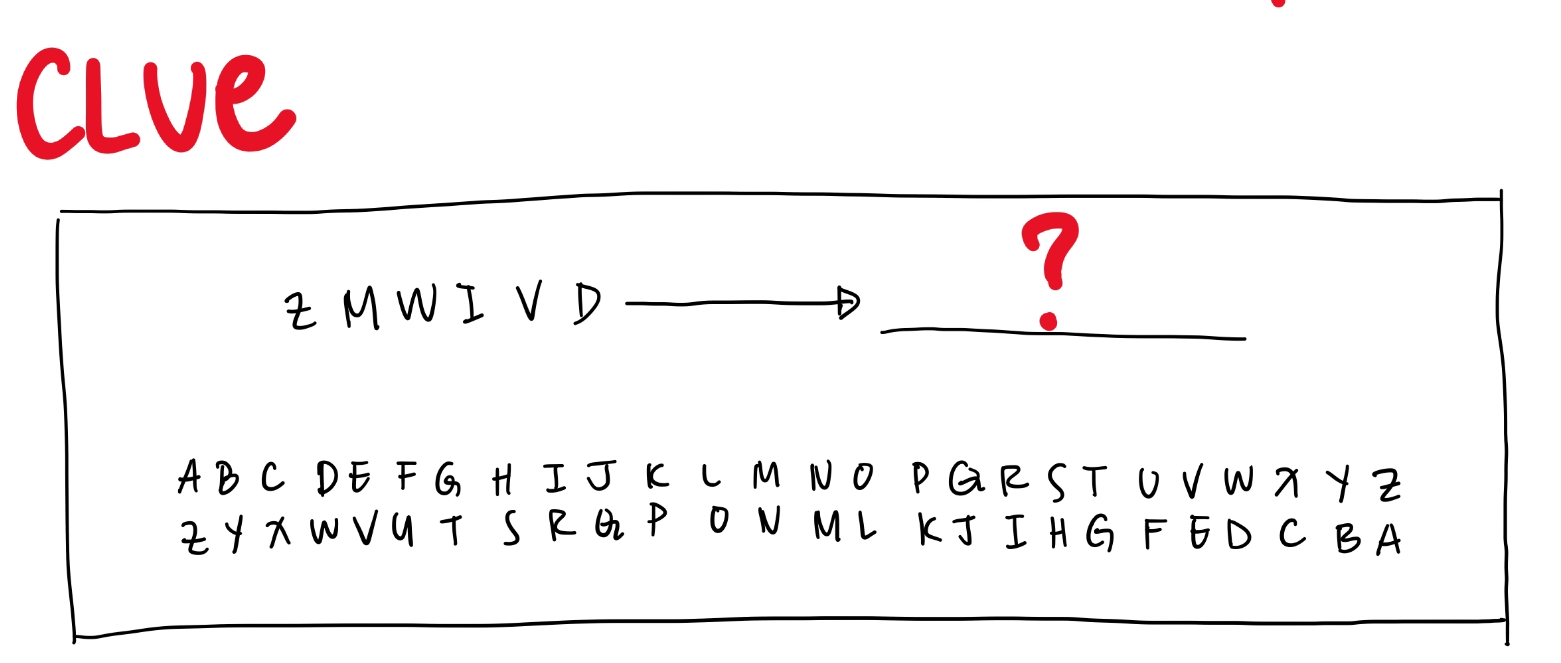 CLUE
Z M W I V D ?
A B C D E F G H I J K L M N O P Q R S T U V W X Y Z
Z Y X W V U T S R Q P O N M L K J I H G F E D C B A